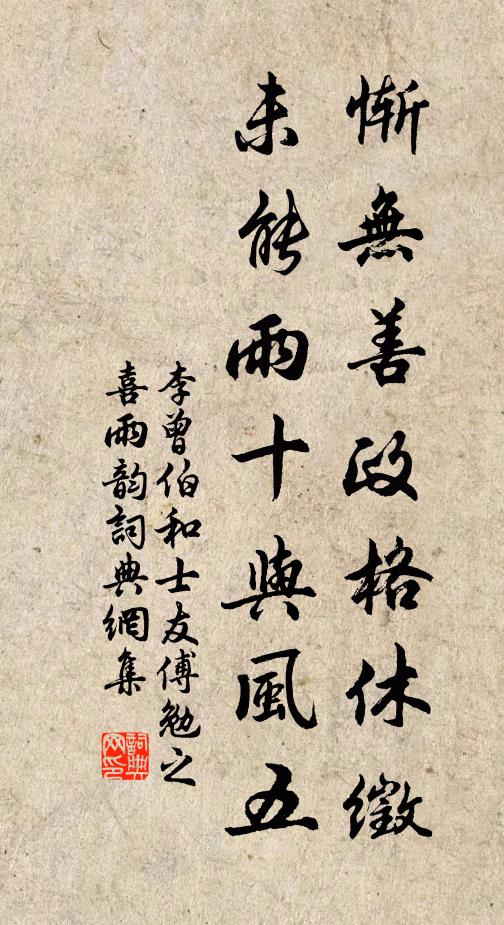 慚無善政格休徵
未能雨十與風五
李曾伯和士友傅勉之
喜雨韵詞典網集
詞典
网印